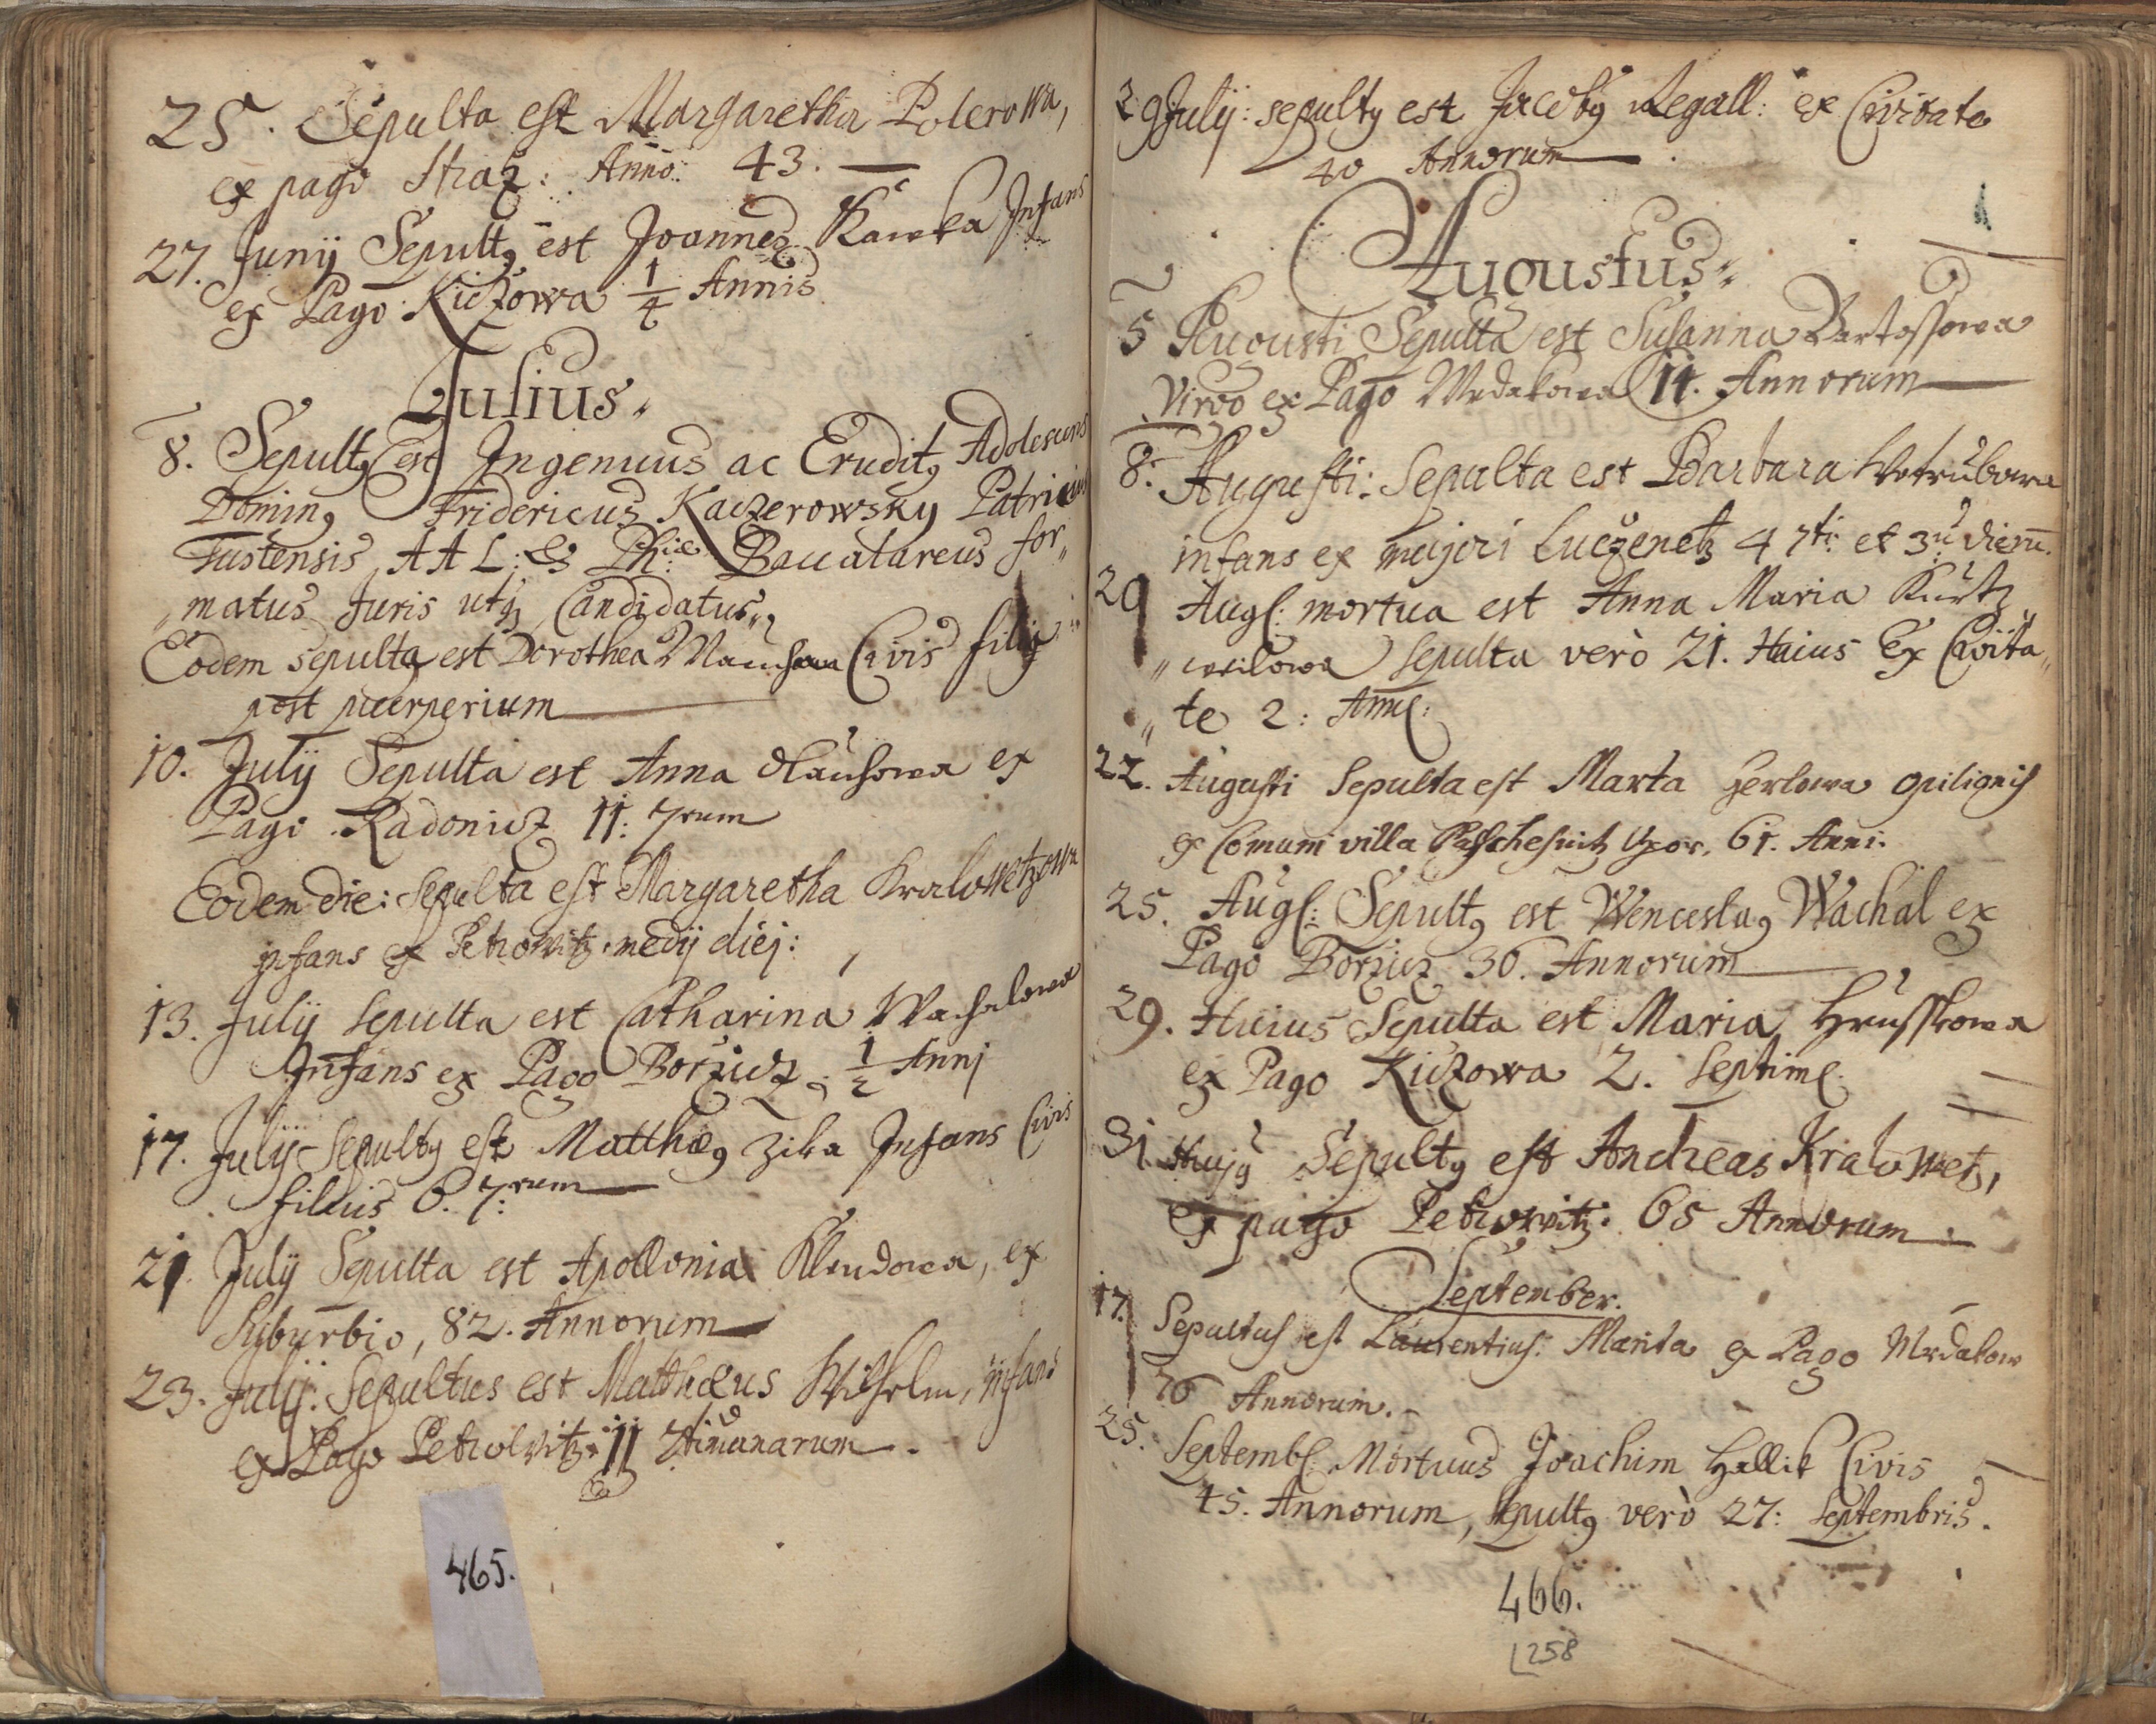 25. Sepulta est Margaretha Polerowa,
ex pago Straz: Anno: 43.
27. Junij Sepultꝰ est Joannes Kawka Infans
ex Pago Kiczowa 1/4 Annis
Julius
8. Sepultꝰ est Ingenuus ac Eruditꝰ Adolescens
Dominꝰ Fridericus Kaczerowsky Patricius
Tustensis, AA L: & Phiæ Baccalareus for„
„matus Juris utꝗ Candidatus„
Eodem sepulta est Dorothea Civis filia
post puerperium
10. Julij Sepulta est Anna Hausowa ex
Pago Radonicz 11: 7rum
Eodem die: sepulta est Margaretha Kralowetzowa
infans ex Petrowitz medij diej:
13. Julij sepulta est Catharina Wachalowa
Infans ex Pago Borzicz 1/2 Annj
17. Julij sepultꝰ est Matthæꝰ Zika Infans Civis
filius 6. 7:rum
21. Julij Sepulta est Apollonia Klendowa, ex
Suburbio, 82. Annorum
23. Julij: Sepultus est Mathæus Wilhelm, infans
ex Pago Petrowitz: 11 7timanarum.
465.
29 Julij: sepultꝰ est Jacobꝰ Regall: ex Civitate
40 Annorum
Augustus
5 Augusti Sepulta est Susanna Bartossowa
Virgo ex Pago Mrdakowa 14. Annorum
8: Augusti: Sepulta est Barbara Wotrubowa
infans ex majori Luczenetz 4 7ti: et 3u dieru.
20 Aug: mortua est Anna Maria Kurtz
„weilowa sepulta verò 21. Huius Ex Civita„
„te 2: Ann:
22. Augusti Sepulta est Marta Herlowa opilionis
ex Comuni villa Paschesnitz Uxor. 61. Anni.
25. Aug: Sepultꝰ est Wenceslaꝰ Wachal ex
Pago Borzicz 30. Annorum
29. Huius Sepulta est Maria Hrusskowa
ex Pago Kiczowa 2. Septim:
31 Hujꝰ Sepultꝰ est Andreas Kralowetz,
ex pago Petrowitz: 65 Annorum
September.
17. Sepultus est Laurentius: Manda ex Pago Mrdakow
76 Annorum.
25. Septemb: Mortuus Joachim Hallik Civis
45. Annorum, sepultꝰ verò 27: Septembris.
466.
258